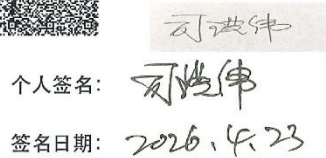 司洪伟
个人签名：司洪伟
签名日期：2026.4.23